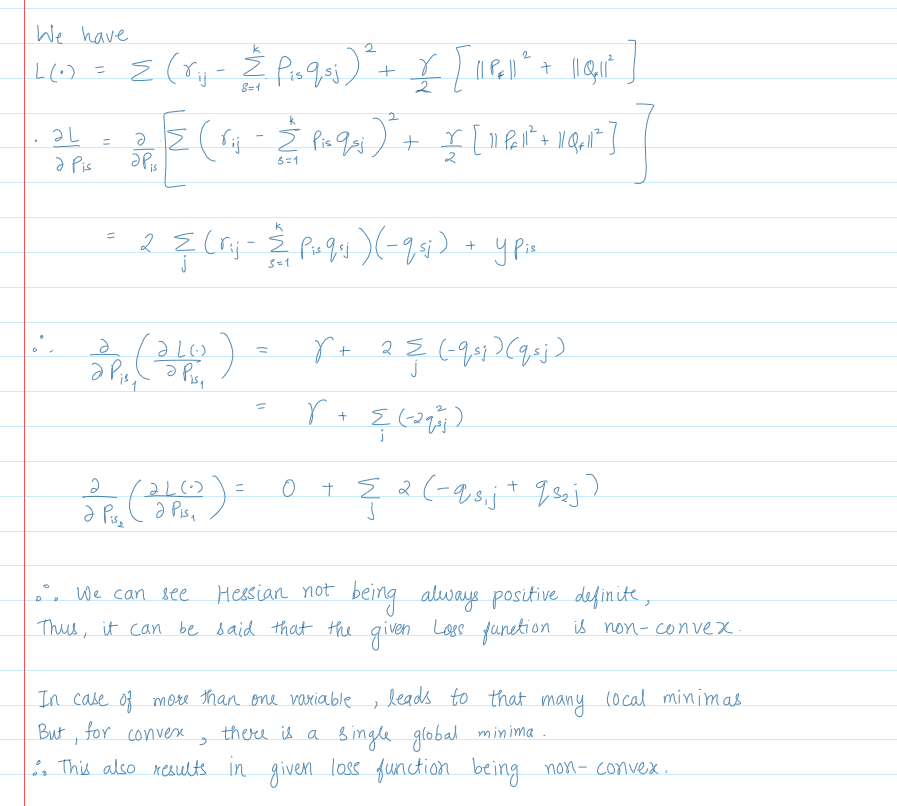 We have
L(·) = Σ (r_ij - Σ_{s=1}^{k} P_is q_sj)² + γ/2 [ ||P_F||² + ||Q_F||² ]
· ∂L/∂P_is = ∂/∂P_is [ Σ (r_ij - Σ_{s=1}^{k} P_is q_sj)² + γ/2 [ ||P_F||² + ||Q_F||² ] ]
= 2 Σ_j (r_ij - Σ_{s=1}^{k} P_is q_sj)(-q_sj) + y P_is
∴ ∂/∂P_is₁ (∂L(·)/∂P_is₁) = γ + 2 Σ_j (-q_sj)(q_sj)
= γ + Σ_j (-2q_sj²)
∂/∂P_is₂ (∂L(·)/∂P_is₁) = 0 + Σ_j 2 (-q_s₁j + q_s₂j)
∴ We can see Hessian not being always positive definite,
Thus, it can be said that the given Loss function is non-convex.
In case of more than one variable, leads to that many local minimas
But, for convex, there is a single global minima.
∴ This also results in given loss function being non-convex.